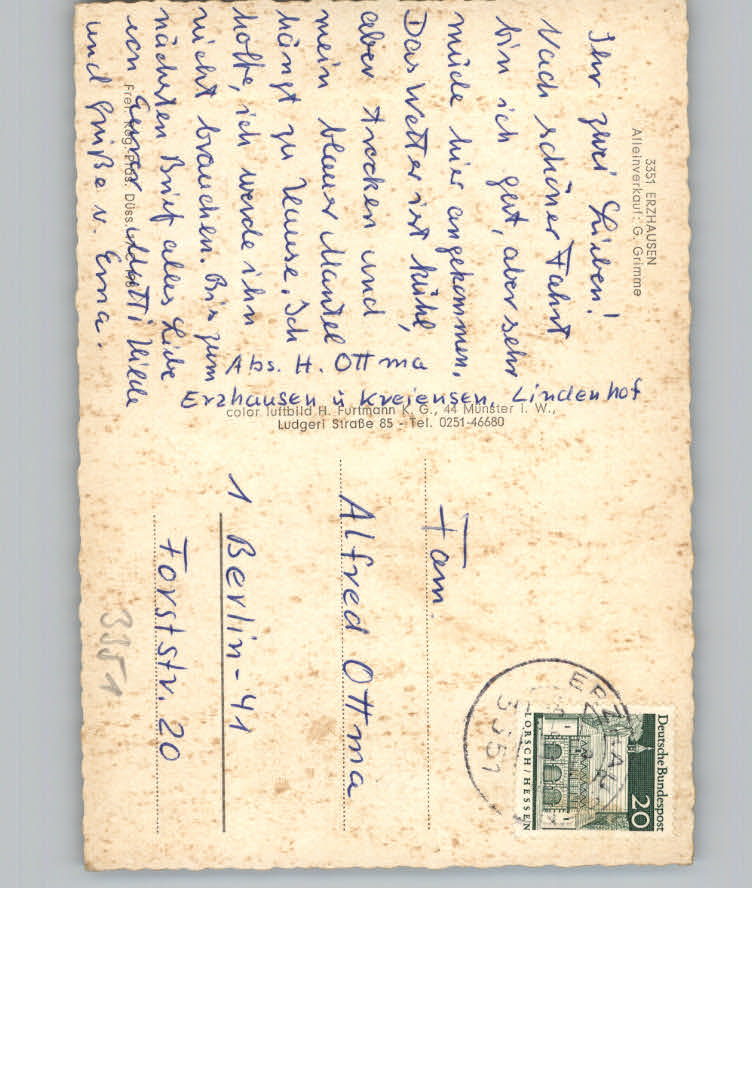 3351 ERZHAUSEN
Alleinverkauf: G. Grimme
Ihr zwei Lieben!
Nach schöner Fahrt
bin ich gut, aber sehr
müde hier angekommen.
Das Wetter ist kühl,
aber trocken und
mein blauer Mantel
hängt zu Hause. Ich
hoffe, ich werde ihn
nicht brauchen. Bis zum
nächsten Brief alles Liebe
von Eurer Mutti Hilde
und Grüße v. Erna.
Freig. Reg. Präs. Düss.
Abs. H. Ottma
Erzhausen ü Kreiensen, Lindenhof
color luftbild H. Furtmann K. G., 44 Münster i. W.,
Ludgeri Straße 85 - Tel. 0251-46680
Fam.
Alfred Ottma
1 Berlin-41
Forststr. 20
3351
Deutsche Bundespost
20
LORSCH/HESSEN
3351